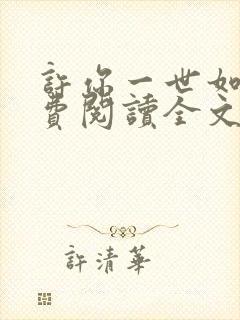 許你一世如
費閱讀全文
許清華